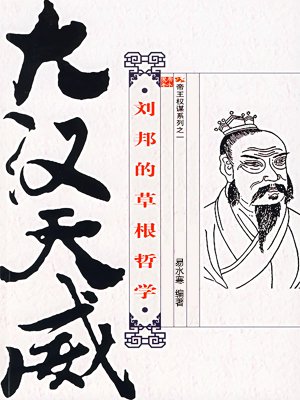 大汉天威
·刘邦的草根哲学·
帝王权谋系列之一
易水寒 编著